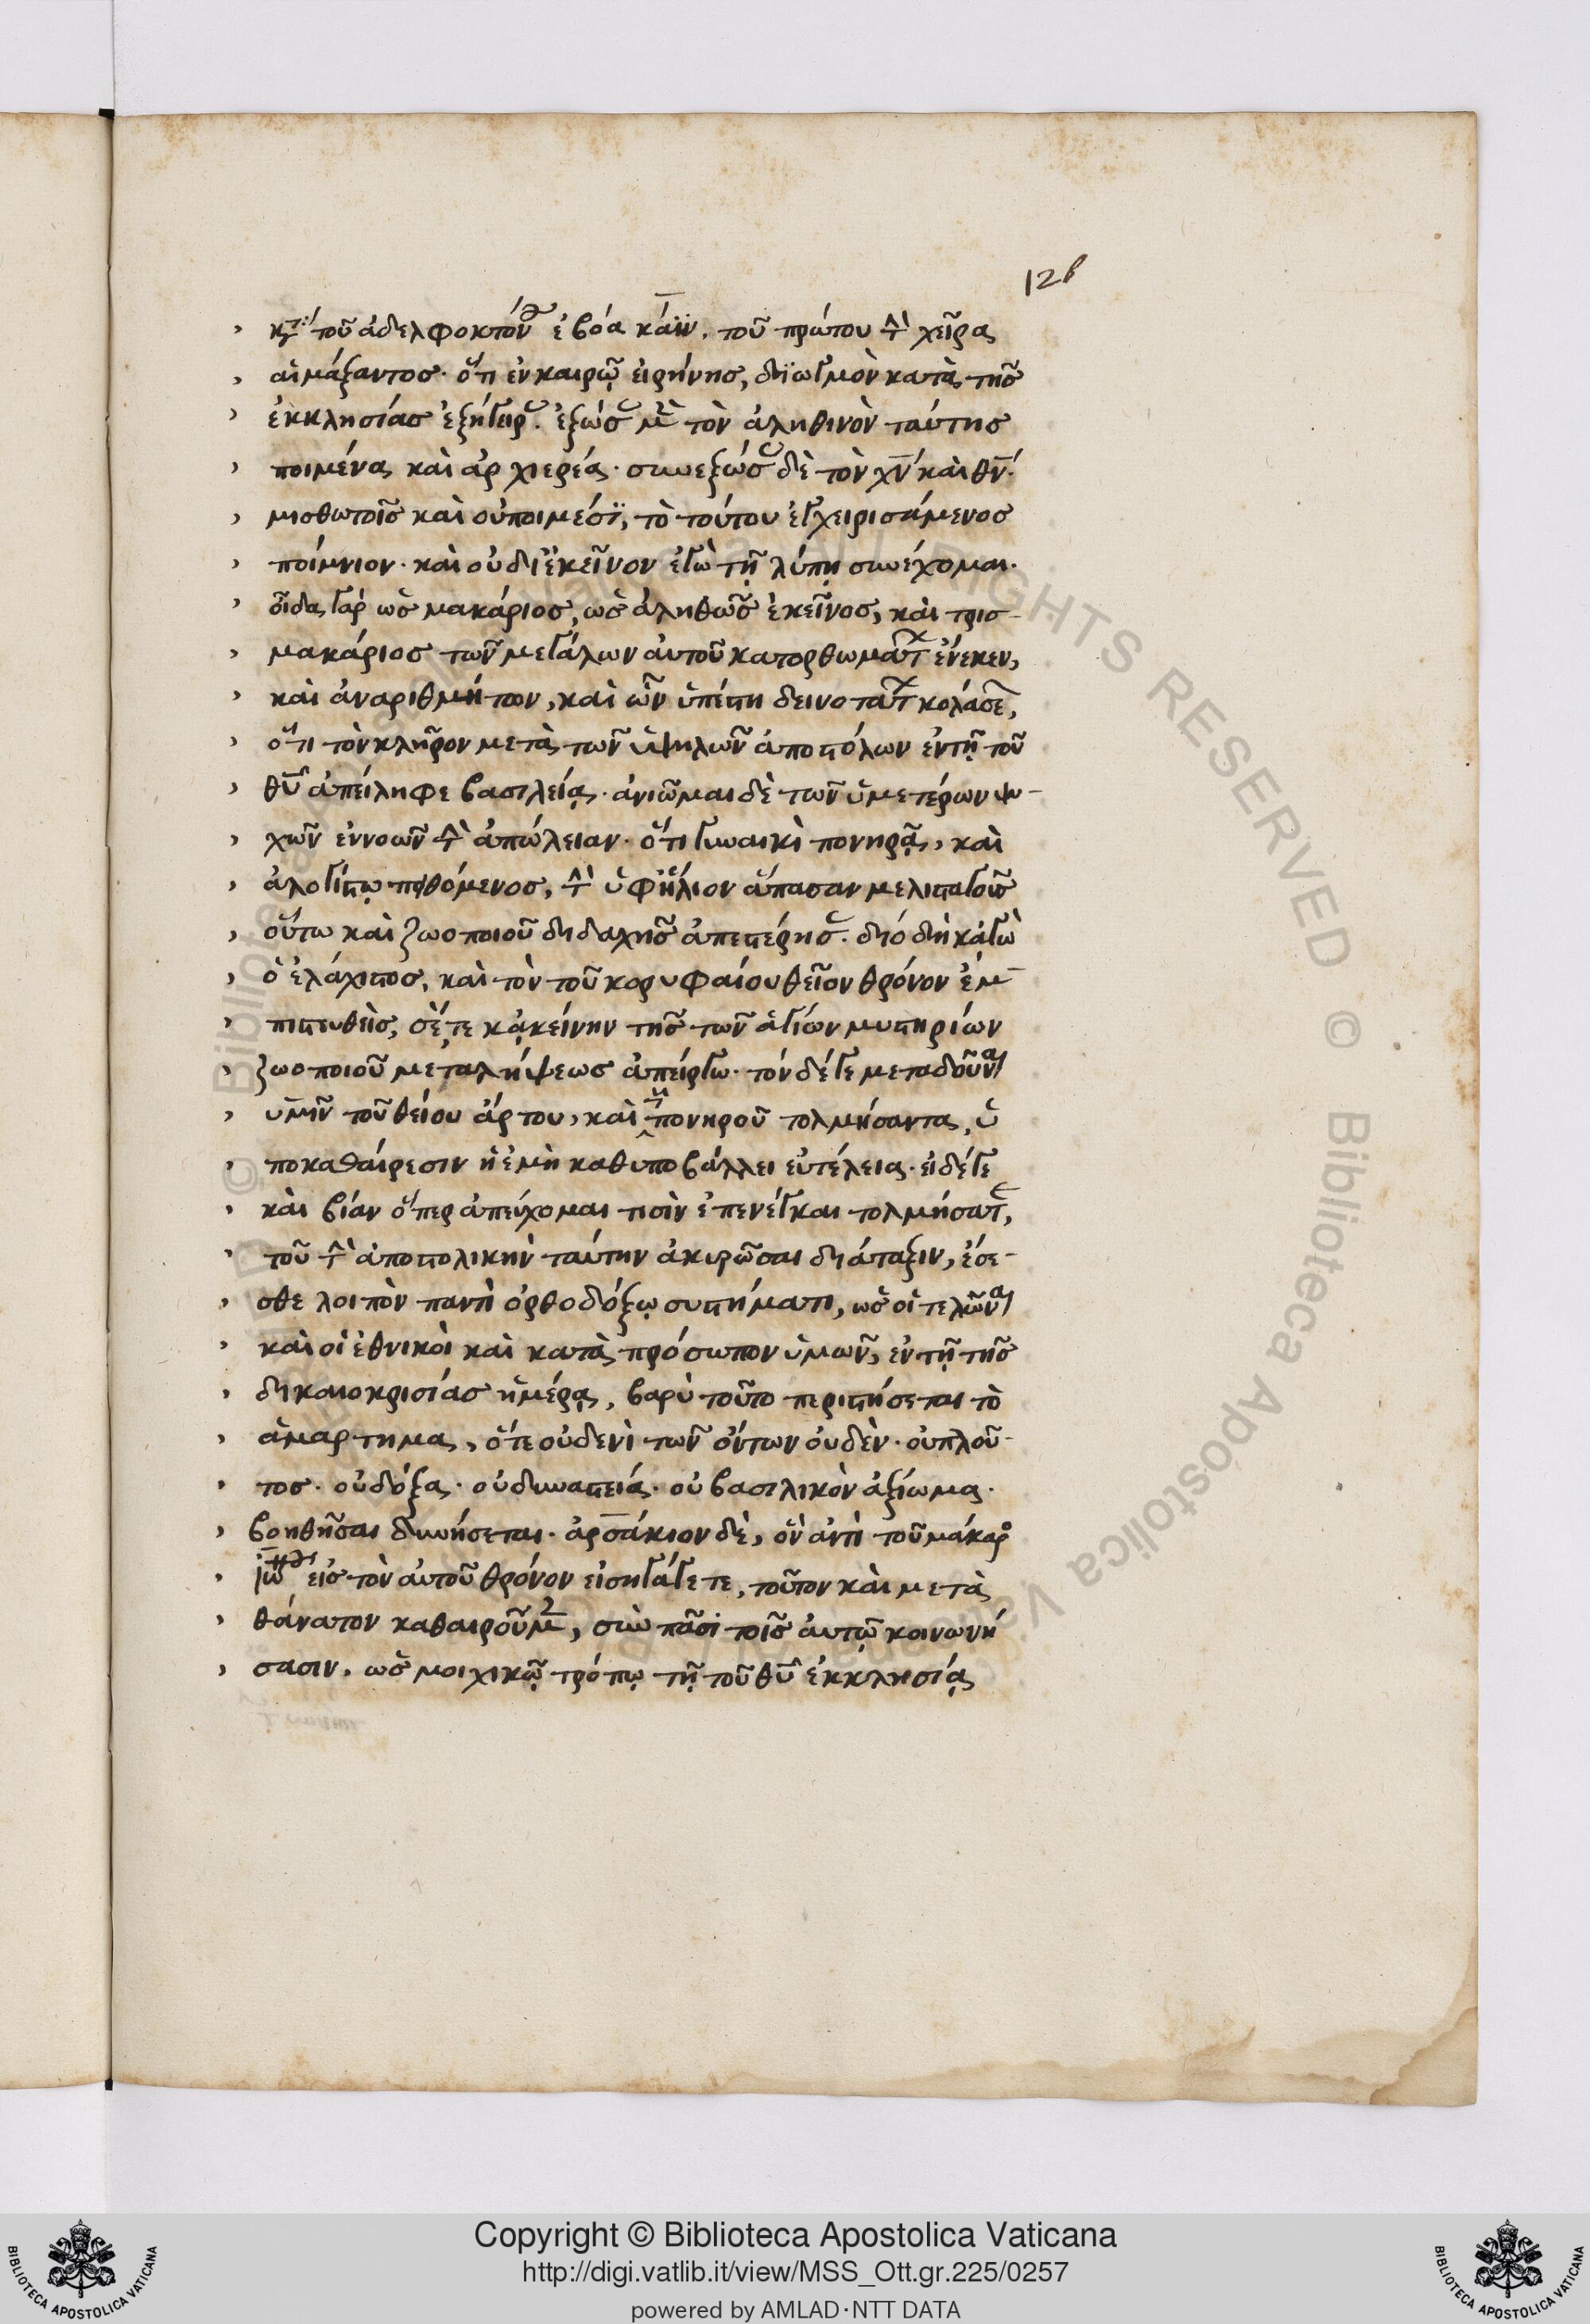 128
κτ´ τοῦ ἀδελφοκτόν ἐβόα κάϊν. τοῦ πρώτου τ̀ χεῖρα
αἱμάξαντος· ὅτι ἐν καιρῷ εἰρήνης, διωγμὸν κατὰ τῆς
ἐκκλησίας ἐξήγειρ. ἐξώσ μ̀ τὸν ἀληθινὸν ταύτης
ποιμένα καὶ ἀρχιερέα· συνεξώσ δὲ τὸν χν καὶ θν·
μισθωτοῖς καὶ οὐ ποιμέσϊ, τὸ τούτου ἐγχειρισάμενος
ποίμνιον· καὶ οὐ δι ἐκεῖνον ἐγὼ τῇ λύπῃ συνέχομαι·
οἶδα γὰρ ὡς μακάριος, ὡς ἀληθῶς ἐκεῖνος, καὶ τρισ-
μακάριος τῶν μεγάλων αὐτοῦ κατορθωμάτ ἕνεκεν,
καὶ ἀναριθμήτων, καὶ ὧν ὑπέστη δεινοτάτ κολάσε,
ὅτι τὸν κλῆρον μετὰ τῶν ὑψηλῶν ἀποστόλων ἐν τῇ τοῦ
θυ ἀπείληφε βασιλείᾳ· ἀνιῶμαι δὲ τῶν ὑμετέρων ψυ-
χῶν ἐννοῶν τ̀ ἀπώλειαν· ὅτι γυναικὶ πονηρᾷ, καὶ
ἀλογίστῳ πειθόμενος, τ̀ ὑφήλιον ἅπασαν μελισταγοῦς
οὕτω καὶ ζωοποιοῦ διδαχῆς ἀπεστέρησ. διὸ δὴ κἀγὼ
ὁ ἐλάχιστος, καὶ τὸν τοῦ κορυφαίου θεῖον θρόνον ἐμ-
πιστευθεὶς, σέ, τε κἀκείνην τῆς τῶν ἁγίων μυστηρίων
ζωοποιοῦ μεταλήψεως ἀπείργω· τὸν δέ γε μεταδοῦνα
ὑμῖν τοῦ θείου ἄρτου, καὶ πονηροῦ τολμήσαντα, ὑ
ποκαθαίρεσιν ἡ ἐμὴ καθυποβάλλει εὐτέλεια· εἰ δέ γε
καὶ βίαν ὅπερ ἀπεύχομαι τισὶν ἐπενέγκαι τολμήσατ,
τοῦ τ̀ ἀποστολικὴν ταύτην ἀκυρῶσαι διάταξιν, ἔσε-
σθε λοιπὸν παντὶ ὀρθοδόξῳ συστήματι, ὡς οἱ τελῶνα
καὶ οἱ ἐθνικοὶ καὶ κατὰ πρόσωπον ὑμῶν, ἐν τῇ τῆς
δικαιοκρισίας ἡμέρᾳ, βαρὺ τοῦτο περιστήσεται τὸ
ἁμάρτημα, ὅτε οὐδενὶ τῶν ὄντων οὐδὲν· οὐ πλοῦ-
τος· οὐ δόξα· οὐ δυναστεία· οὐ βασιλικὸν ἀξίωμα·
βοηθῆσαι δυνήσεται· ἀρσάκιον δὲ, ὃν ἀντὶ τοῦ μάκαρ
ἰω εἰς τὸν αὐτοῦ θρόνον εἰσηγάγετε, τοῦτον καὶ μετὰ
θάνατον καθαιροῦμ, σὺν πᾶσι τοῖς αὐτῷ κοινωνή
σασιν, ὡς μοιχικῷ τρόπῳ τῇ τοῦ θυ ἐκκλησίᾳ
Copyright © Biblioteca Apostolica Vaticana
http://digi.vatlib.it/view/MSS_Ott.gr.225/0257
powered by AMLAD·NTT DATA